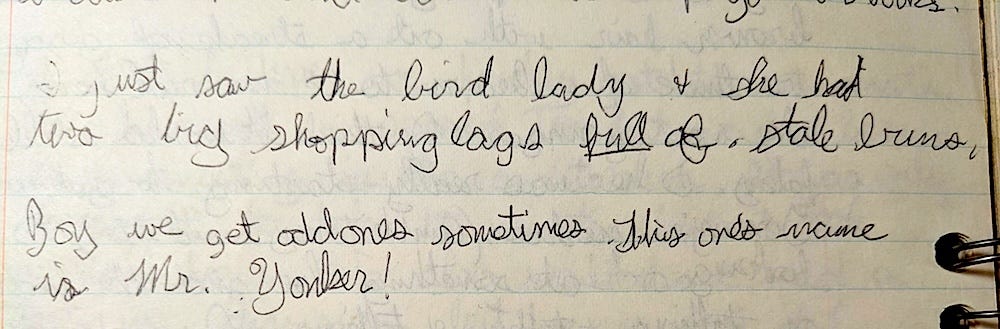 I just saw the bird lady & she had
two big shopping bags full of. stale buns,
Boy we get odd ones sometimes. This ones name
is Mr. Yonker!